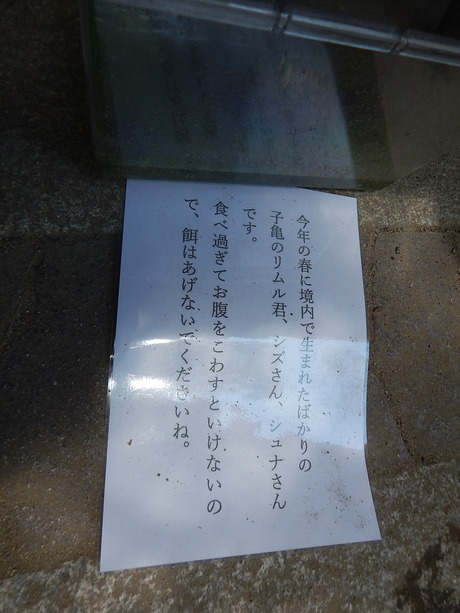 今年の春に境内で生まれたばかりの
子亀のリムル君、シズさん、シュナさん
です。
食べ過ぎてお腹をこわすといけないの
で、餌はあげないでくださいね。